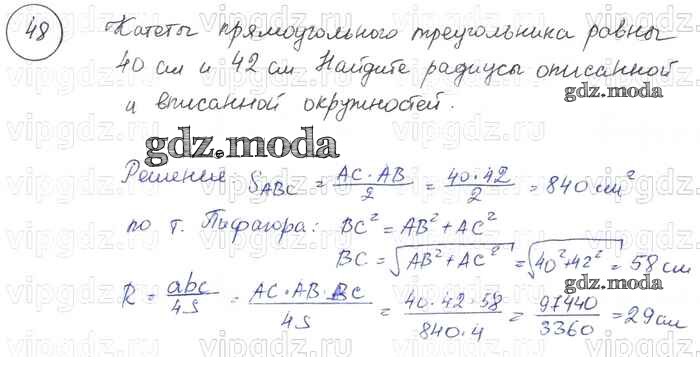 48
Катеты прямоугольного треугольника равны
40 см и 42 см. Найдите радиусы описанной
и вписанной окружностей.
gdz.moda
gdz.moda
Решение: S_ABC = AC·AB/2 = 40·42/2 = 840 см²
по т. Пифагора: BC² = AB² + AC²
BC = √(AB² + AC²) = √(40² + 42²) = 58 см
R = abc/4S = AC·AB·BC/4S = 40·42·58/840·4 = 97440/3360 = 29 см
gdz.moda
vipgdz.ru